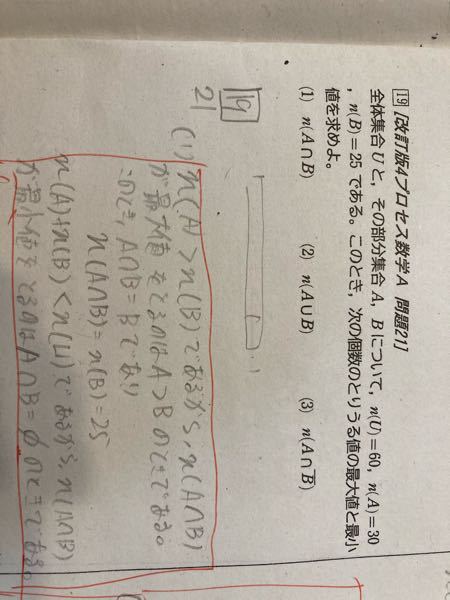 19 [改訂版4プロセス数学A 問題21]
全体集合Uと，その部分集合A，Bについて，n(U)=60，n(A)=30
，n(B)=25 である。このとき，次の個数のとりうる値の最大値と最小
値を求めよ。
(1) n(A∩B) (2) n(A∪B) (3) n(A∩B̅)
19
21
(1) n(A)>n(B)であるから，n(A∩B)
が最大値をとるのはA⊃Bのときである。
このとき，A∩B=Bであり
n(A∩B)=n(B)=25
n(A)+n(B)<n(U)であるから，n(A∩B)
が最小値をとるのはA∩B=φのときである。